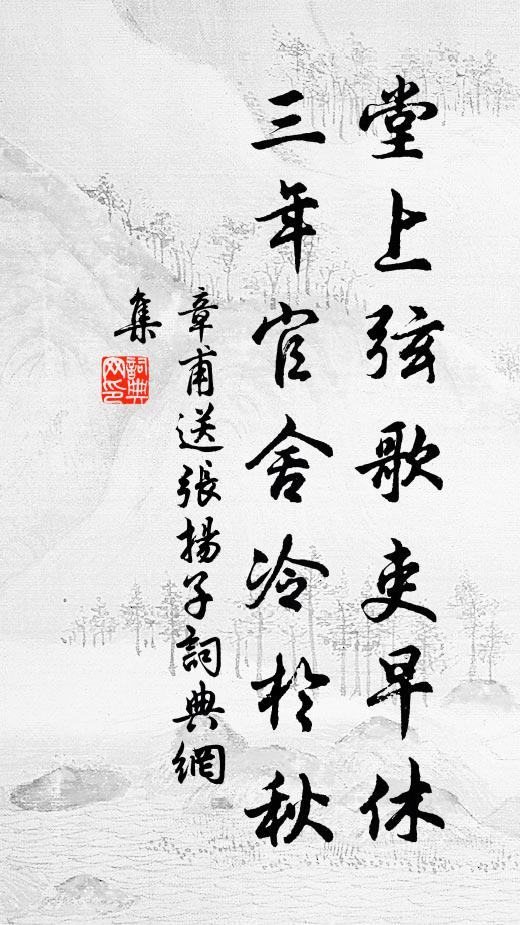 堂上弦歌吏早休
三年官舍冷於秋
章甫送張揚子詞典網
集
詞典网印